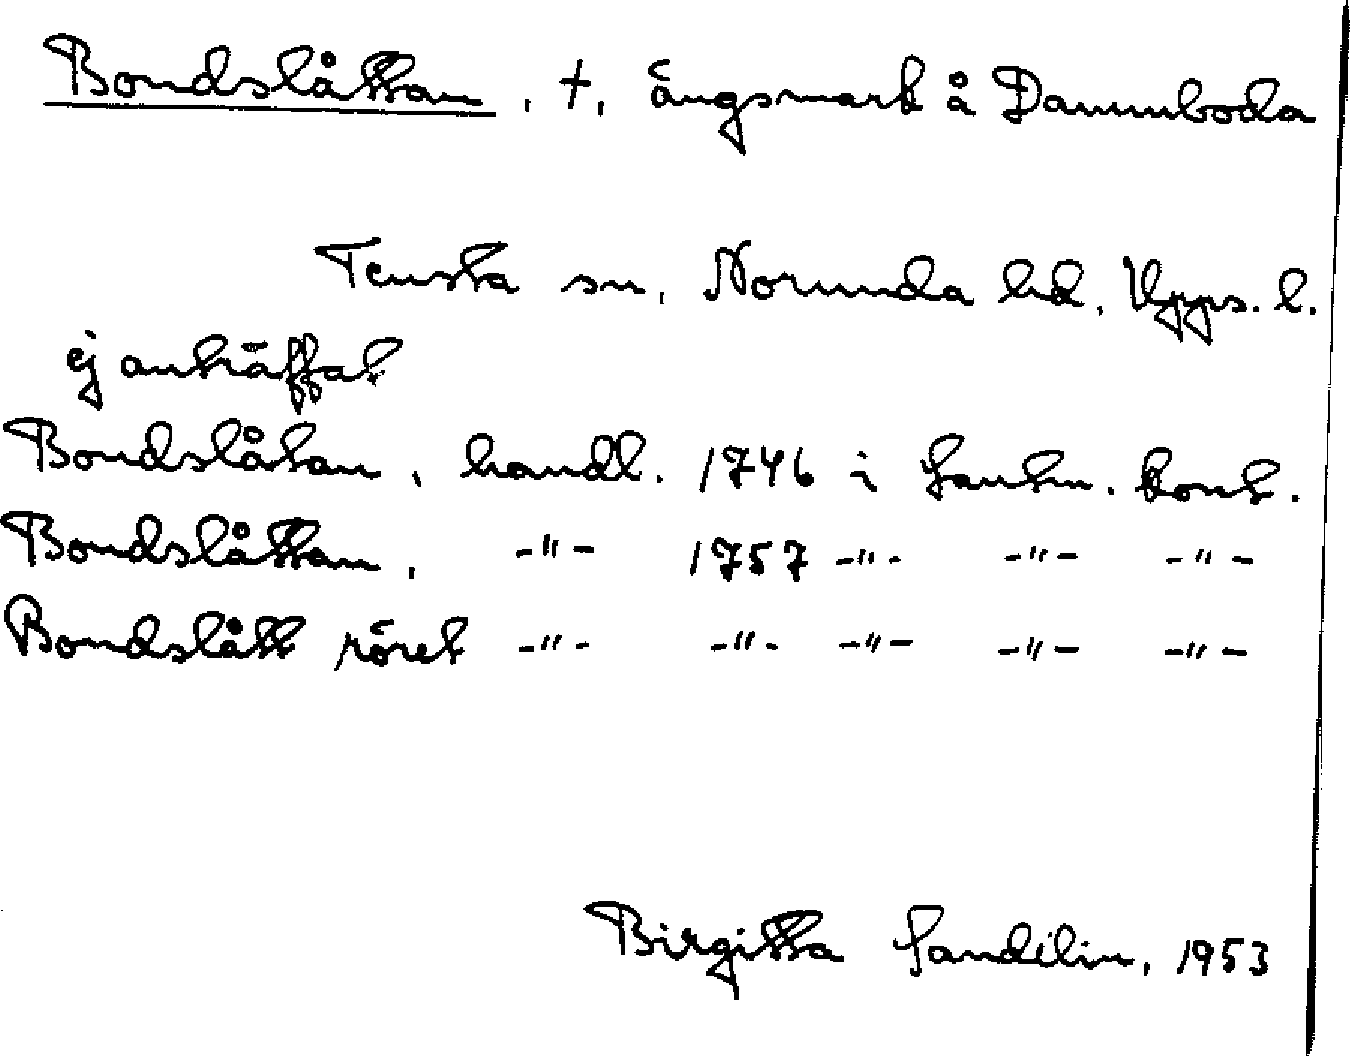 Bondslåttan, †, ängsmark å Dammboda
Tensta sn, Norunda hd, Upps. l.
ej anträffat
Bondslåtan, handl. 1746 i Lantm. kont.
Bondslåttan, -"- 1757 -"- -"- -"-
Bondslått röret -"- -"- -"- -"- -"-
Birgitta Sandelin, 1953